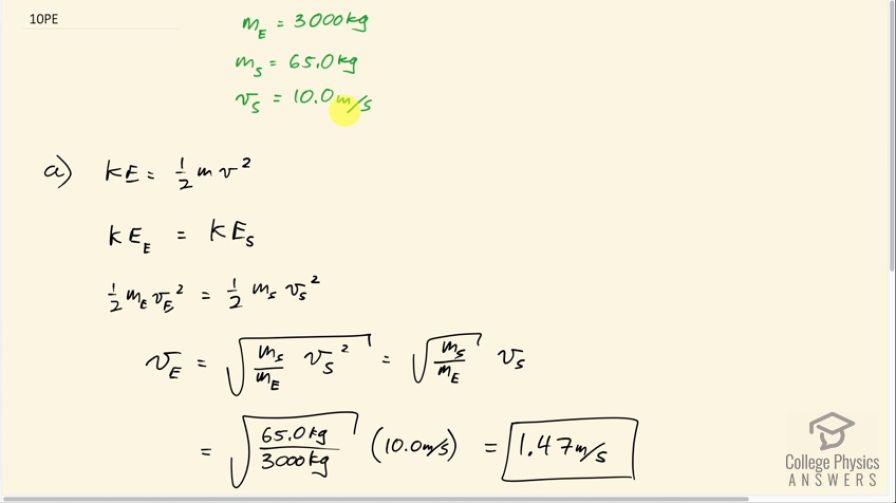 10PE
m_E = 3000kg
m_S = 65.0kg
v_S = 10.0m/s
a) KE = 1/2 m v²
KE_E = KE_S
1/2 m_E v_E² = 1/2 m_S v_S²
v_E = √(m_S/m_E v_S²) = √(m_S/m_E) v_S
= √(65.0kg/3000kg) (10.0m/s) = 1.47m/s
College Physics
ANSWERS